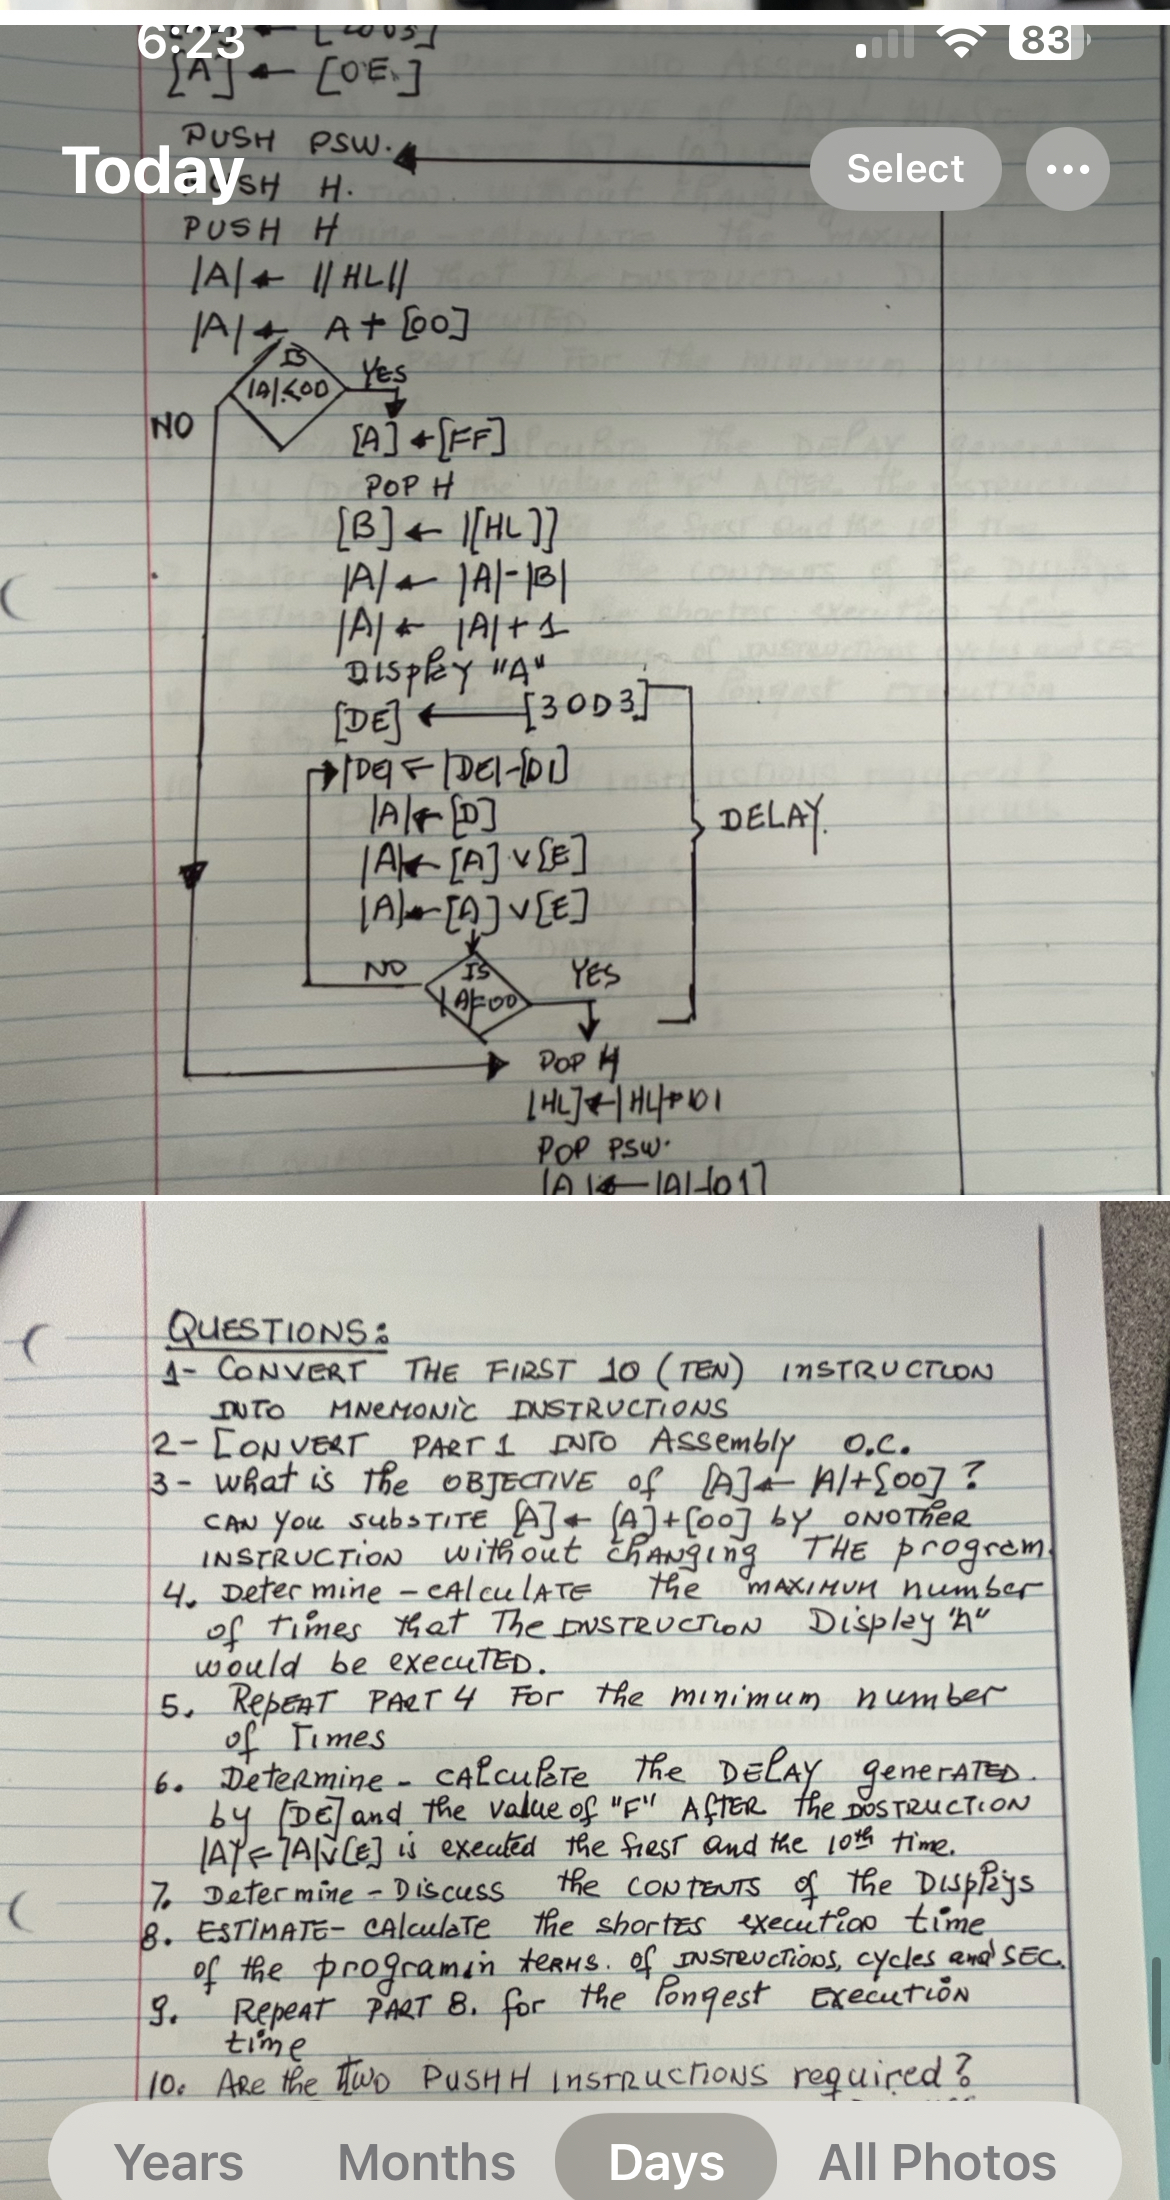 6:23
83
[A] ← [0E]
PUSH PSW.
Today
Select
PUSH H.
PUSH H
|A| ← ||HL||
|A| ← A + [00]
IS
|A|<00
YES
NO
[A] ← [FF]
POP H
[B] ← |[HL]]
|A| ← |A|-|B|
|A| ← |A|+1
DISPLAY "A"
[DE] ← [30D3]
|DE| ← |DE|-[01]
|A| ← [D]
DELAY.
|A| ← [A] V [E]
|A| ← [A] V [E]
NO
IS
|A|=00
YES
POP H
[HL] ← |HL|+01
POP PSW.
|A| ← |A|-[01]
QUESTIONS:
1- CONVERT THE FIRST 10 (TEN) INSTRUCTION
INTO MNEMONIC INSTRUCTIONS
2- CONVERT PART 1 INTO Assembly O.C.
3- What is the OBJECTIVE of [A] ← |A|+[00] ?
CAN YOU SUBSTITE [A] ← [A]+[00] by ONOTHER
INSTRUCTION without changing THE program.
4. Determine - CALCULATE the MAXIMUM number
of times that The INSTRUCTION Display "A"
would be executed.
5. REPEAT PART 4 FOR the minimum number
of Times
6. Determine - CALCULATE the DELAY generATED.
by [DE] and the value of "F" AFTER the INSTRUCTION
|A| ← |A|V[E] is executed the first and the 10th time.
7. Determine - DISCUSS the CONTENTS of the Displays
8. ESTIMATE - CALCULATE the shortes execution time
of the programin teRMS. of INSTRUCTIONS, cycles and SEC.
9. REPEAT PART 8. for the longest EXECUTION
time
10. ARE the TWO PUSH H INSTRUCTIONS required?
Years
Months
Days
All Photos